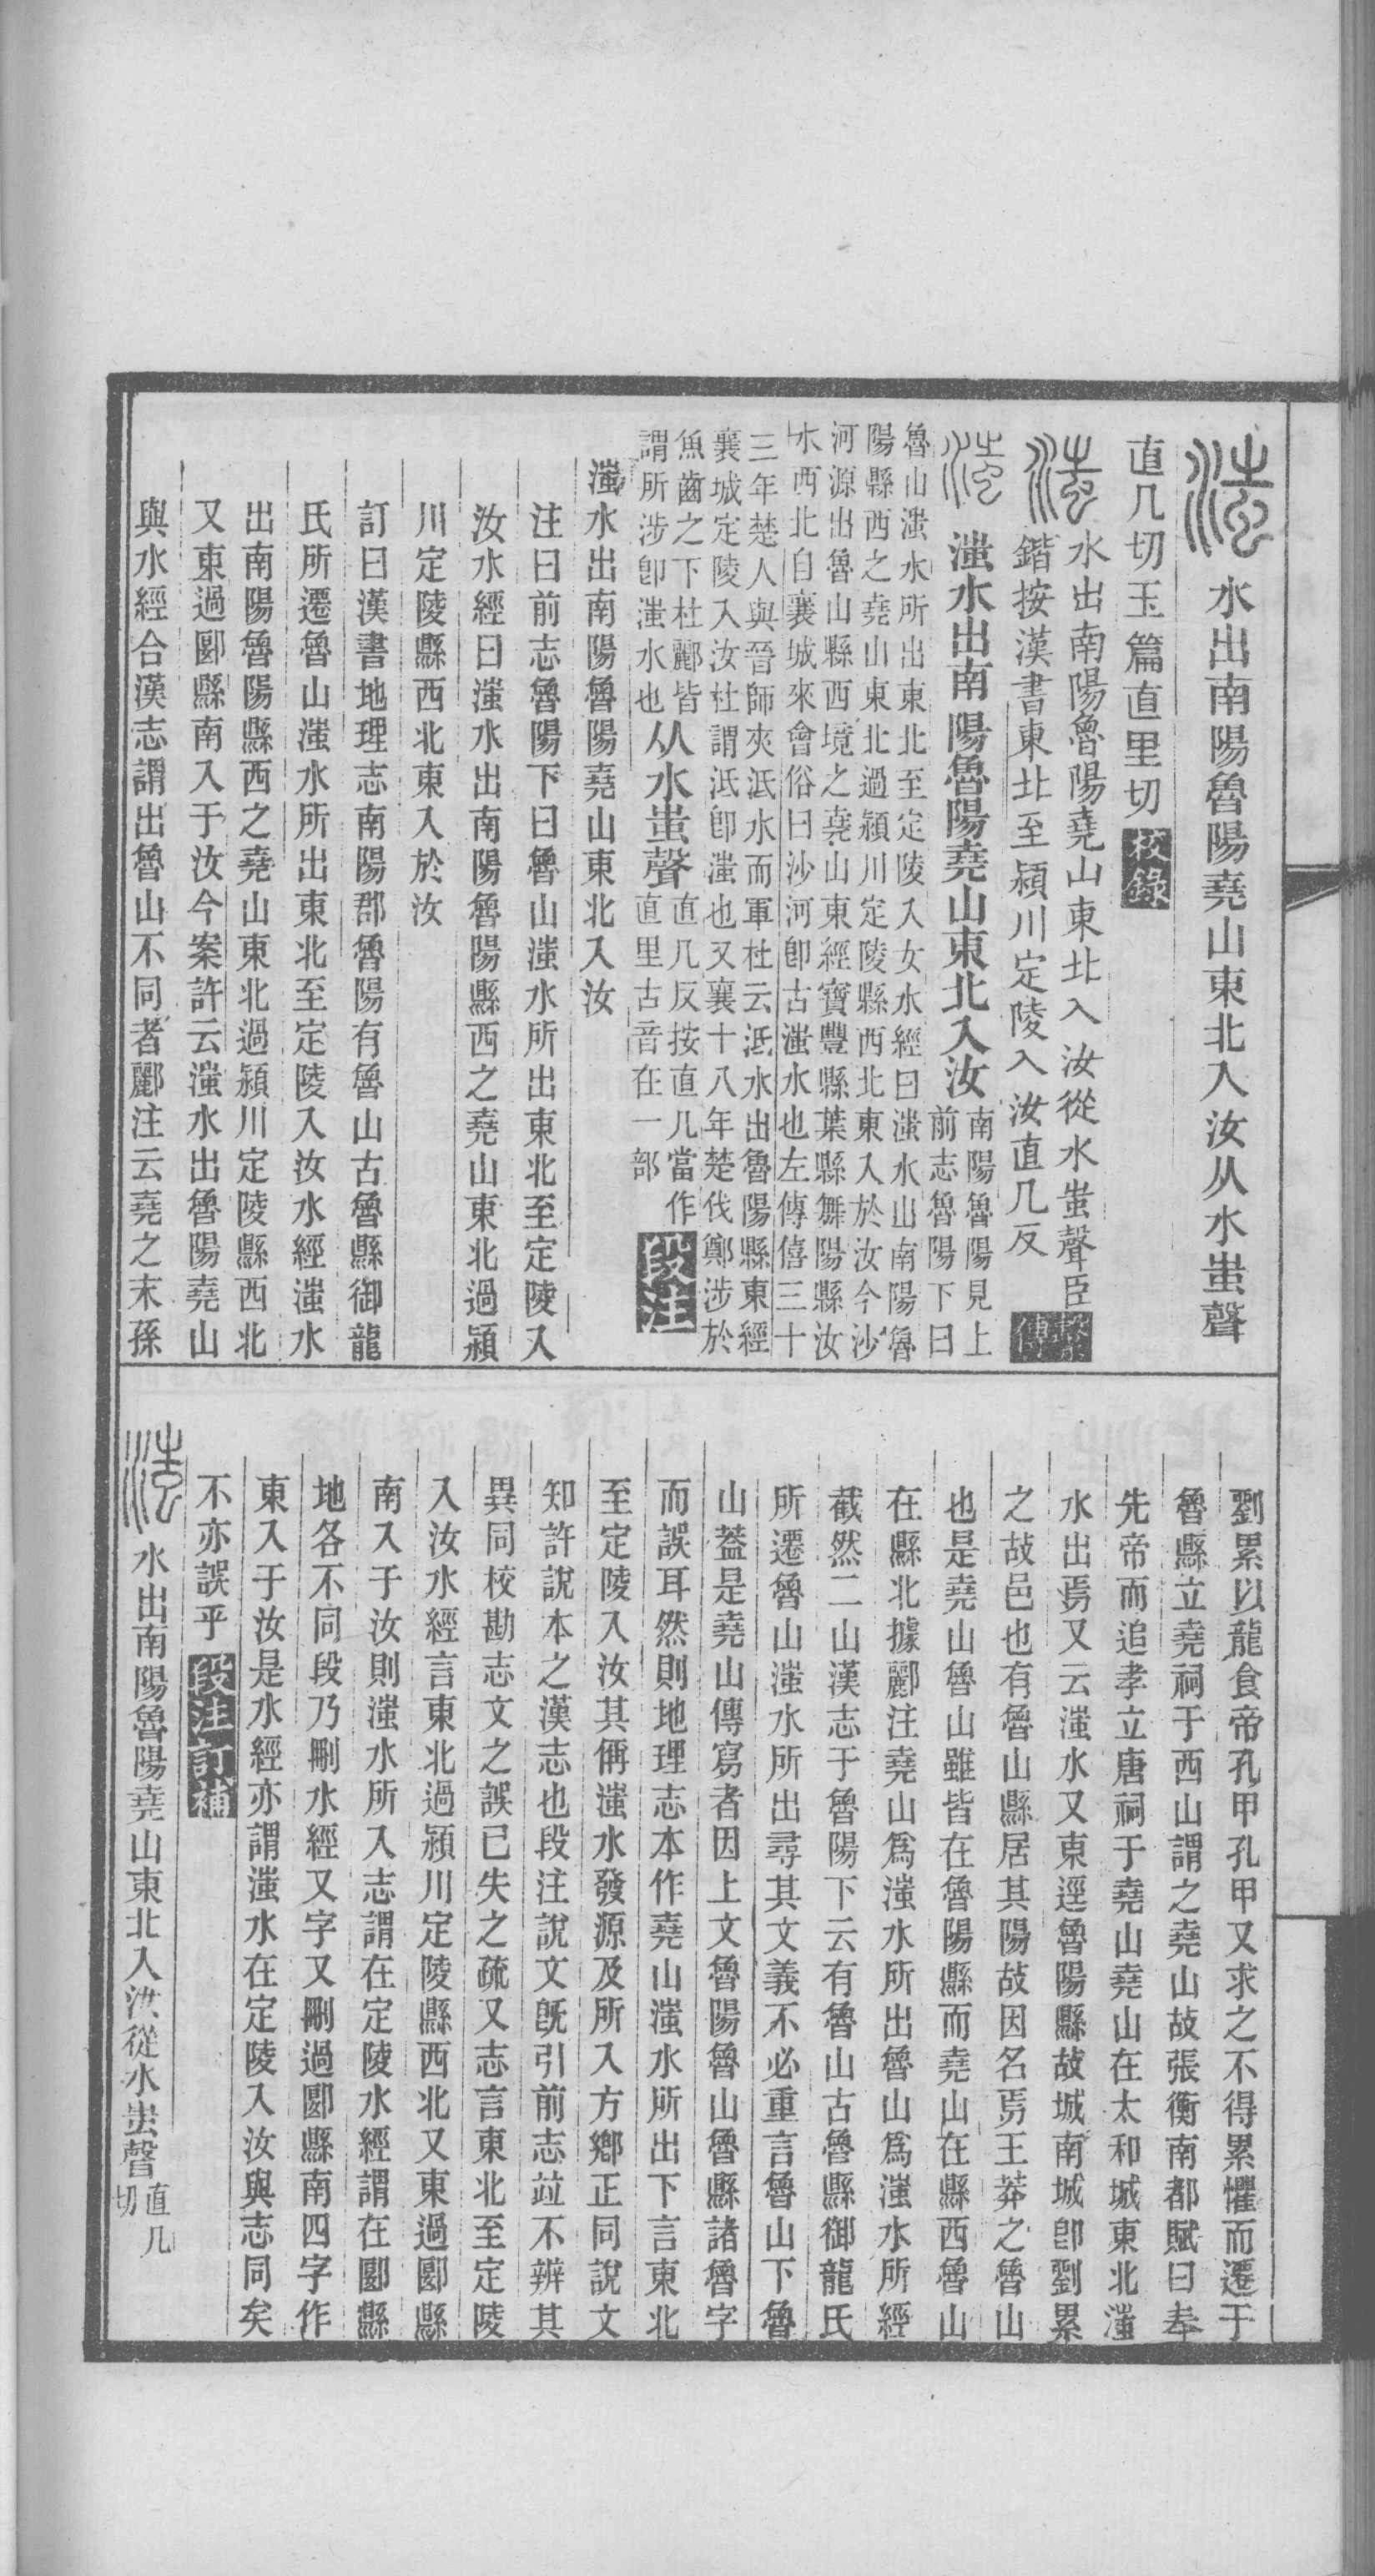 水出南陽魯陽堯山東北入汝从水蚩聲
直几切玉篇直里切 校錄
水出南陽魯陽堯山東北入汝從水蚩聲臣
鍇按漢書東北至潁川定陵入汝直几反 繫傳
滍水出南陽魯陽堯山東北入汝 南陽魯陽見上
前志魯陽下曰
魯山滍水所出東北至定陵入女水經曰滍水山南陽魯
陽縣西之堯山東北過潁川定陵縣西北東入於汝今沙
河源出魯山縣西境之堯山東經寶豐縣葉縣舞陽縣汝
水西北自襄城來會俗曰沙河卽古滍水也左傳僖三十
三年楚人與晉師夾泜水而軍杜云泜水出魯陽縣東經
襄城定陵入汝杜謂泜卽滍也又襄十八年楚伐鄭涉於
魚齒之下杜酈皆
謂所涉卽滍水也
从水蚩聲 直几反按直几當作
直里古音在一部 段注
滍水出南陽魯陽堯山東北入汝
注曰前志魯陽下曰魯山滍水所出東北至定陵入
汝水經曰滍水出南陽魯陽縣西之堯山東北過潁
川定陵縣西北東入於汝
訂曰漢書地理志南陽郡魯陽有魯山古魯縣御龍
氏所遷魯山滍水所出東北至定陵入汝水經滍水
出南陽魯陽縣西之堯山東北過潁川定陵縣西北
又東過郾縣南入于汝今案許云滍水出魯陽堯山
與水經合漢志謂出魯山不同者酈注云堯之末孫
劉累以龍食帝孔甲孔甲又求之不得累懼而遷于
魯縣立堯祠于西山謂之堯山故張衡南都賦曰奉
先帝而追孝立唐祠于堯山堯山在太和城東北滍
水出焉又云滍水又東逕魯陽縣故城南城卽劉累
之故邑也有魯山縣居其陽故因名焉王莽之魯山
也是堯山魯山雖皆在魯陽縣而堯山在縣西魯山
在縣北據酈注堯山爲滍水所出魯山爲滍水所經
截然二山漢志于魯陽下云有魯山古魯縣御龍氏
所遷魯山滍水所出尋其文義不必重言魯山下魯
山蓋是堯山傳寫者因上文魯陽魯山魯縣諸魯字
而誤耳然則地理志本作堯山滍水所出下言東北
至定陵入汝其偁滍水發源及所入方鄉正同說文
知許說本之漢志也段注說文旣引前志竝不辨其
異同校勘志文之誤已失之疏又志言東北至定陵
入汝水經言東北過潁川定陵縣西北又東過郾縣
南入于汝則滍水所入志謂在定陵水經謂在郾縣
地各不同段乃刪水經又字又刪過郾縣南四字作
東入于汝是水經亦謂滍水在定陵入汝與志同矣
不亦誤乎 段注訂補
水出南陽魯陽堯山東北入汝從水蚩聲 直几
切